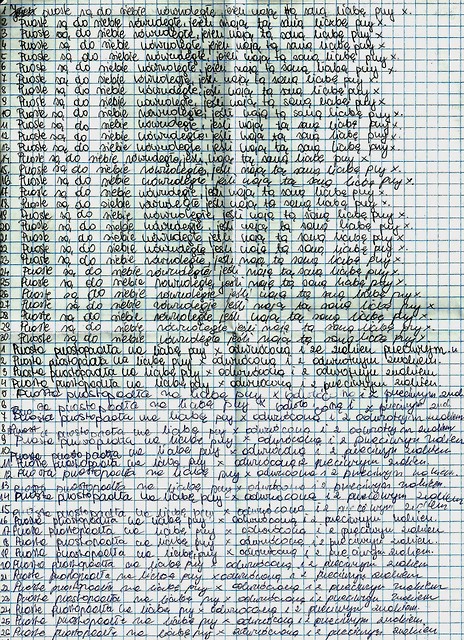 Proste są do siebie równoległe, jeśli mają tą samą liczbę przy x.
2 Proste są do siebie równoległe, jeśli mają tą samą liczbę przy x.
3 Proste są do siebie równoległe, jeśli mają tą samą liczbę przy x.
4 Proste są do siebie równoległe, jeśli mają tą samą liczbę przy x.
5 Proste są do siebie równoległe, jeśli mają tą samą liczbę przy x.
6 Proste są do siebie równoległe, jeśli mają tą samą liczbę przy x.
7 Proste są do siebie równoległe, jeśli mają tą samą liczbę przy x.
8 Proste są do siebie równoległe, jeśli mają tą samą liczbę przy x.
9 Proste są do siebie równoległe, jeśli mają tą samą liczbę przy x.
10 Proste są do siebie równoległe, jeśli mają tą samą liczbę przy x.
11 Proste są do siebie równoległe, jeśli mają tą samą liczbę przy x.
12 Proste są do siebie równoległe, jeśli mają tą samą liczbę przy x.
13 Proste są do siebie równoległe, jeśli mają tą samą liczbę przy x.
14 Proste są do siebie równoległe, jeśli mają tą samą liczbę przy x.
15 Proste są do siebie równoległe, jeśli mają tą samą liczbę przy x.
16 Proste są do siebie równoległe, jeśli mają tą samą liczbę przy x.
17 Proste są do siebie równoległe, jeśli mają tą samą liczbę przy x.
18 Proste są do siebie równoległe, jeśli mają tą samą liczbę przy x.
19 Proste są do siebie równoległe, jeśli mają tą samą liczbę przy x.
20 Proste są do siebie równoległe, jeśli mają tą samą liczbę przy x.
21 Proste są do siebie równoległe, jeśli mają tą samą liczbę przy x.
22 Proste są do siebie równoległe, jeśli mają tą samą liczbę przy x.
23 Proste są do siebie równoległe, jeśli mają tą samą liczbę przy x.
24 Proste są do siebie równoległe, jeśli mają tą samą liczbę przy x.
25 Proste są do siebie równoległe, jeśli mają tą samą liczbę przy x.
26 Proste są do siebie równoległe, jeśli mają tą samą liczbę przy x.
27 Proste są do siebie równoległe, jeśli mają tą samą liczbę przy x.
28 Proste są do siebie równoległe, jeśli mają tą samą liczbę przy x.
29 Proste są do siebie równoległe, jeśli mają tą samą liczbę przy x.
30 Proste są do siebie równoległe, jeśli mają tą samą liczbę przy x.
1 Prosta prostopadła ma liczbę przy x odwróconą i ze znakiem przeciwnym.
2 Prosta prostopadła ma liczbę przy x odwróconą i z odwrotnym znakiem.
3 Prosta prostopadła ma liczbę przy x odwróconą i z odwrotnym znakiem.
4 Prosta prostopadła ma liczbę przy x odwróconą i z przeciwnym znakiem.
5 Prosta prostopadła ma liczbę przy x odwróconą i z przeciwnym znakiem
6 prostopadła ma liczbę przy x i z przeciwnym znakiem
7 Prosta prostopadła ma liczbę przy x odwróconą i z przeciwnym znakiem
8 Prosta prostopadła ma liczbę przy x odwróconą i z odwrotnym znakiem
9 Prosta prostopadła ma liczbę przy x odwróconą i z przeciwnym znakiem
10 Prosta prostopadła ma liczbę przy x odwróconą i z przeciwnym znakiem
11 Prosta prostopadła ma liczbę przy x odwróconą z przeciwnym znakiem
12 Prosta prostopadła ma liczbę przy x odwróconą i z przeciwnym znakiem.
13 Prosta prostopadła ma liczbę przy x odwróconą i z przeciwnym znakiem
14 Prosta prostopadła ma liczbę przy x odwróconą i z przeciwnym znakiem
15 Prosta prostopadła ma liczbę przy x odwróconą i z przeciwnym znakiem
16 Prosta prostopadła ma liczbę przy x odwróconą i z przeciwnym znakiem.
17 Prosta prostopadła ma liczbę przy x odwróconą i z przeciwnym znakiem.
18 Prosta prostopadła ma liczbę przy x odwróconą i z przeciwnym znakiem.
19 Prosta prostopadła ma liczbę przy x odwróconą i z przeciwnym znakiem.
20 Prosta prostopadła ma liczbę przy x odwróconą i z przeciwnym znakiem.
21 Prosta prostopadła ma liczbę przy x odwróconą i z przeciwnym znakiem
22 Prosta prostopadła ma liczbę przy x odwróconą i z przeciwnym znakiem.
23 Prosta prostopadła ma liczbę przy x odwróconą i z przeciwnym znakiem
24 Prosta prostopadła ma liczbę przy x odwróconą i z przeciwnym znakiem.
25 Prosta prostopadła ma liczbę przy x odwróconą i z przeciwnym znakiem.
26 Prosta prostopadła ma liczbę przy x odwróconą i z przeciwnym znakiem.